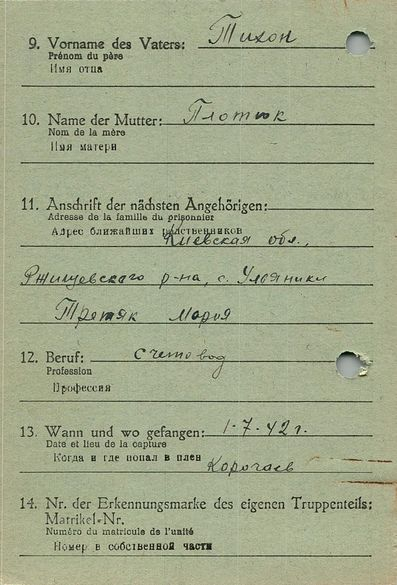 9. Vorname des Vaters: Тихон
Prénom du père
Имя отца
10. Name der Mutter: Плотнюк
Nom de la mère
Имя матери
11. Anschrift der nächsten Angehörigen:
Adresse de la famille du prisonnier
Адрес ближайших родственников
Киевская обл.,
Ржищевского р-на, с. Ульяники
Третяк Мария
12. Beruf: счетовод
Profession
Профессия
13. Wann und wo gefangen: 1-7-42г.
Date et lieu de la capture
Когда и где попал в плен
14. Nr. der Erkennungsmarke des eigenen Truppenteils:
Matrikel-Nr.
Numéro du matricule de l'unité
Номер в собственной части